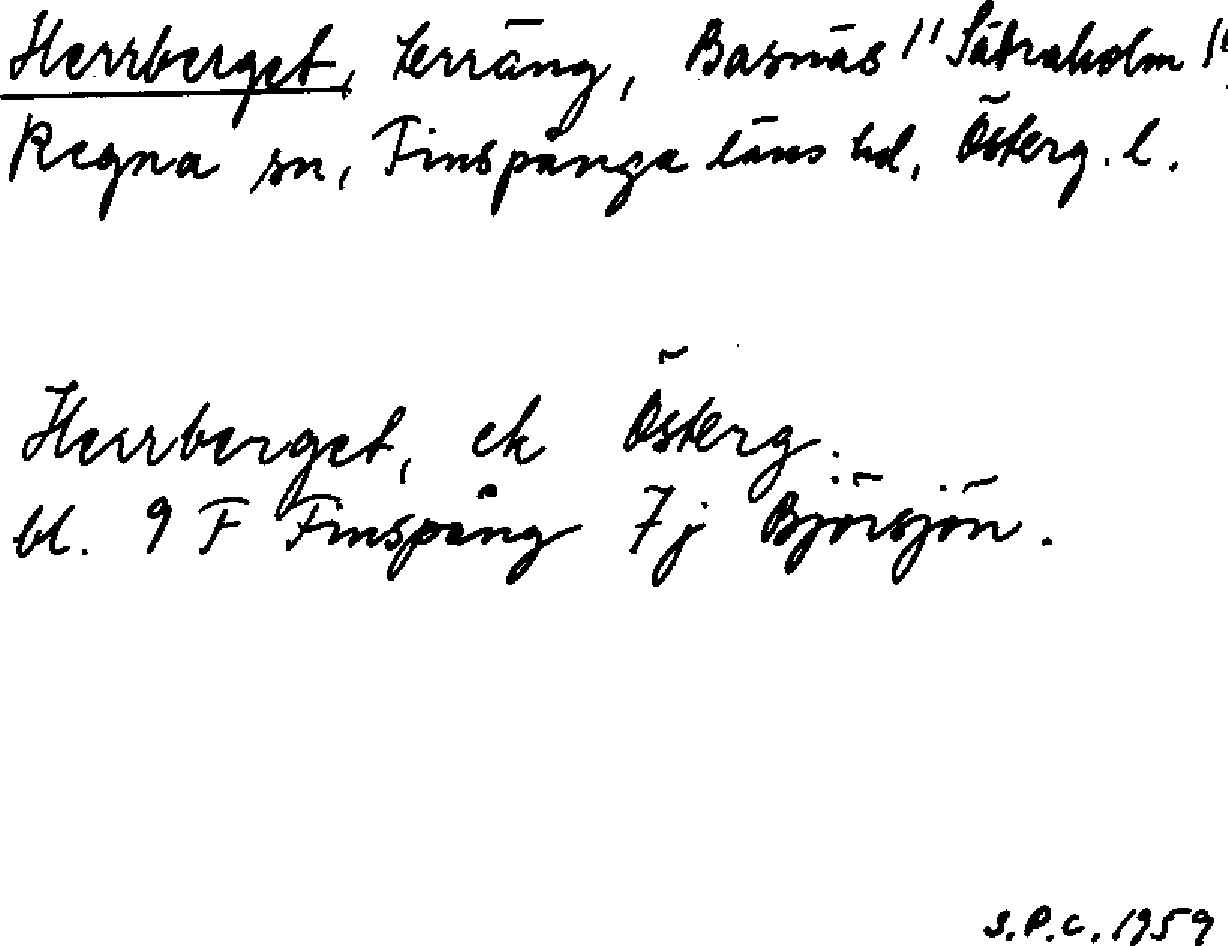 Herrberget, terräng, Basnäs "Sätraholm"
Regna sn, Finspånga läns hd, Österg. l.
Herrberget, ek Österg.
bl. 9 F Finspång 7j Björsjön.
S.P.C. 1959